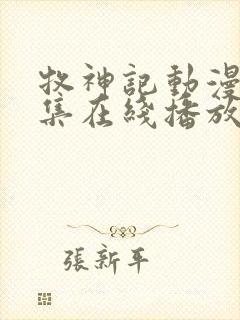 牧神記動漫
集在綫播放
張新平